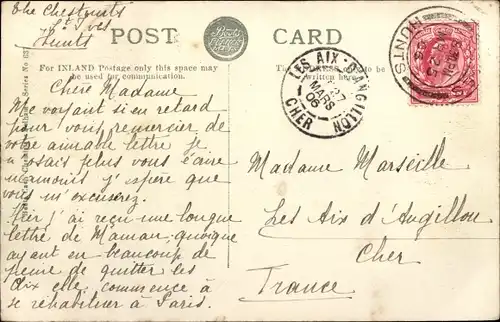 The Chestnuts
St Ives
Hunts
POST CARD
For INLAND Postage only this space may
be used for communication.
written here.
Chère Madame
Me voyant si en retard
pour vous remercier de
votre aimable lettre je
n'osais plus vous écrire
néanmoins j'espère que
vous m'excuserez.
Hier j'ai reçu une longue
lettre de Maman, quoique
ayant eu beaucoup de
peine de quitter les
Aix elle commence à
se réhabituer à Paris.
LES AIX-D'ANGILLON
27
MARS
06
CHER
HUNTS
Madame Marseille
Les Aix d'Angillon
Cher
France